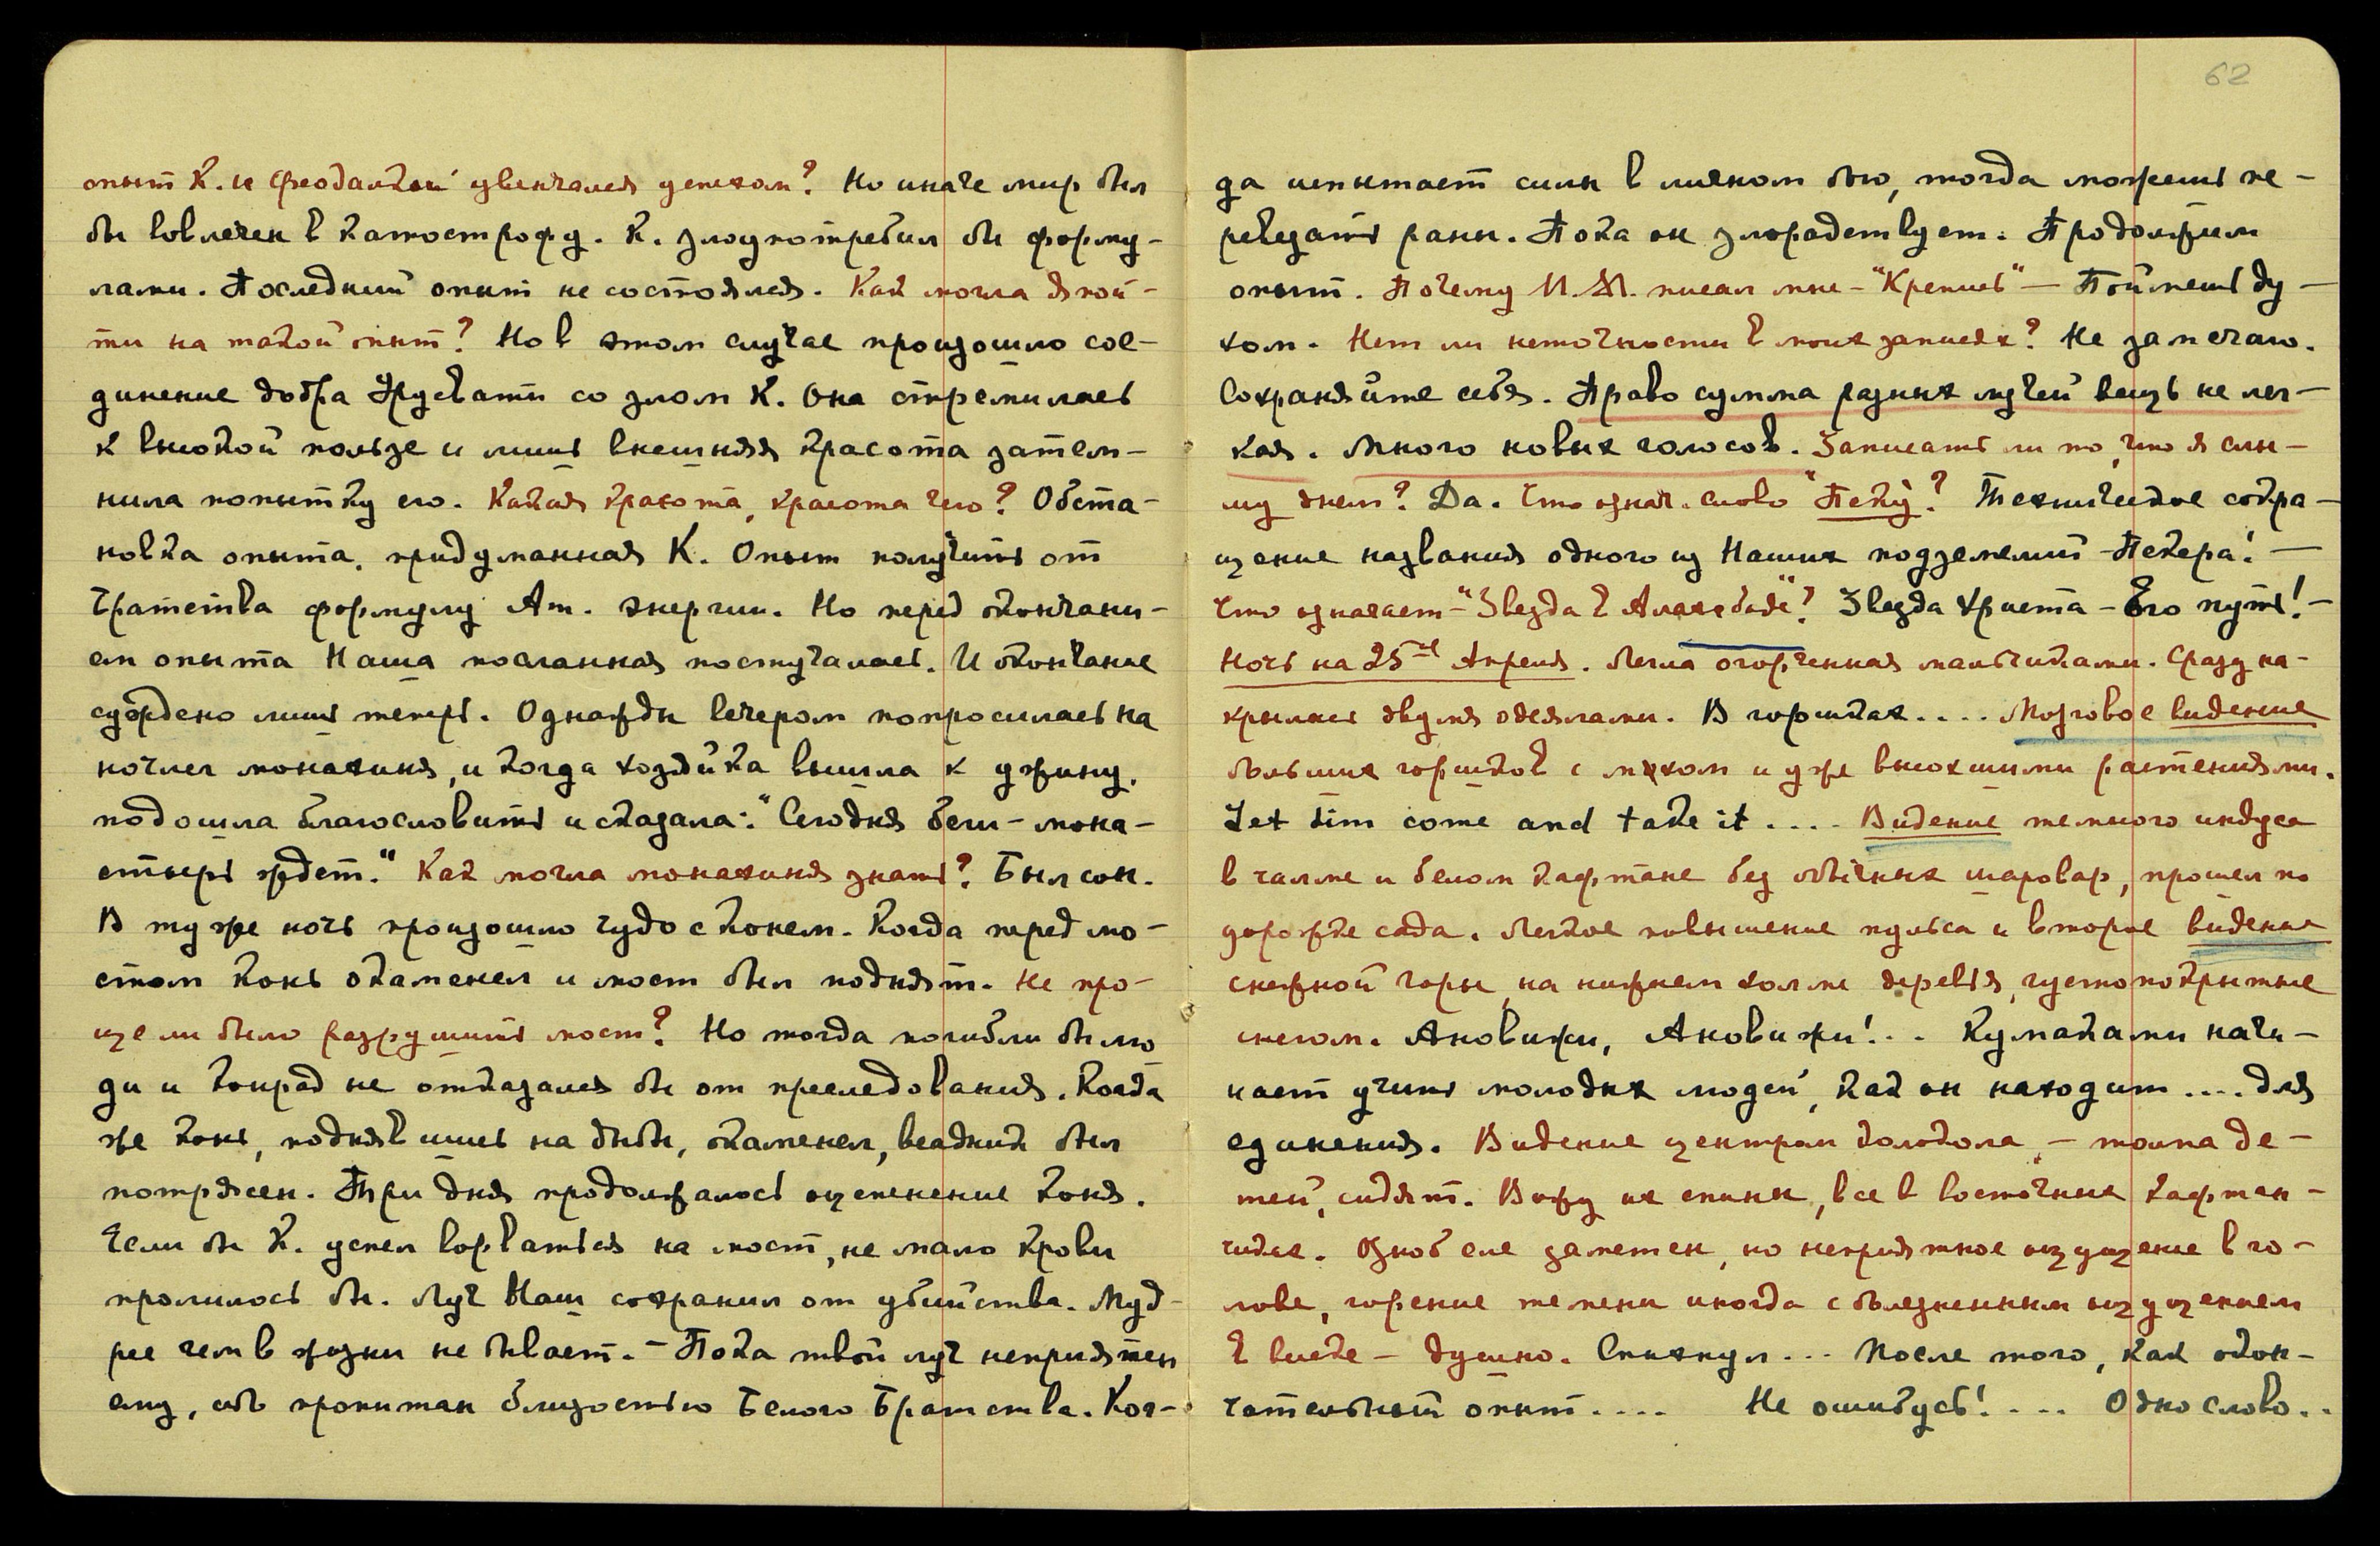 опыт К. и феодалкой увенчался успехом? Но иначе мир был
бы вовлечен в катострофу. К. злоупотребил бы форму-
лами. Последний опыт не состоялся. Как могла я пой-
ти на такой опыт? Но в этом случае произошло сое-
динение добра Урусвати со злом К. Она стремилась
к высокой пользе и лишь внешняя красота затем-
нила попытку его. Какая красота, красота чего? Обста-
новка опыта, придуманная К. Опыт получить от
Братства формулу Ат. энергии. Но перед окончани-
ем опыта Наша посланная постучалась. И окончание
суждено лишь теперь. Однажды вечером попросилась на
ночлег монахиня, и когда хозяйка вышла к ужину,
подошла благословить и сказала: "Сегодня беги - мона-
стырь ждет." Как могла монахиня знать? Был сон.
В ту же ночь произошло чудо с конем. Когда перед мо-
стом конь окаменел и мост был поднят. Не про-
ще ли было разрушить мост? Но тогда погибли бы лю
ди и Конрад не отказался бы от преследования. Когда
же конь, поднявшись на дыбы, окаменел, всадник был
потрясен. Три дня продолжалось оцепенение коня.
Если бы К. успел ворваться на мост, не мало крови
пролилось бы. Луч Наш сохранил от убийства. Муд-
рее чем в жизни не бывает. - Пока твой луч неприятен
ему, ибо пропитан близостью Белого Братства. Ког-
62
да испытает силы в личном бою, тогда можешь пе-
ревязать раны. Пока он злорадствует. Продолжим
опыт. Почему М.М. писал мне - "Крепись" - Поймешь ду-
хом. Нет ли неточности в моих записях? Не замечаю.
Сохраняйте себя. Право сумма разных лучей вещь не лег-
кая. Много новых голосов. Записать ли то, что я слы-
шу днем? Да. Что означ. слово "Пеку"? Техническое сокра-
щение названия одного из Наших подземелий - Пекера! -
Что означает - "Звезда в Аллахабаде"? Звезда Христа - Его путь! -
Ночь на 25ое Апреля. Легла огорченная мальчиками. Сразу на-
крылась двумя одеялами. В горшках.... Мозговое видение
больших горшков с мхом и уже высохшими растениями.
Let him come and take it .... Видение темного индуса
в чалме и белом кафтане без обычных шаровар, прошел по
дорожке сада. Легкое повышение пульса и второе видение
снежной горы, на нижнем холме деревья, густо покрытые
снегом. Ановижи, Ановижи!.. Кулаками начи-
нает учить молодых людей, как он находит .... для
единения. Видение центрам колокола, - толпа де-
тей, сидят. Вижу их спины, все в восточных кафтан-
чиках. Озноб еле заметен, но неприятное ощущение в го-
лове, горение темени иногда с болезненным ощущением
в виске - душно. Спихнул ... После того, как окон-
чательный опыт .... Не ошибусь! .... Одно слово..